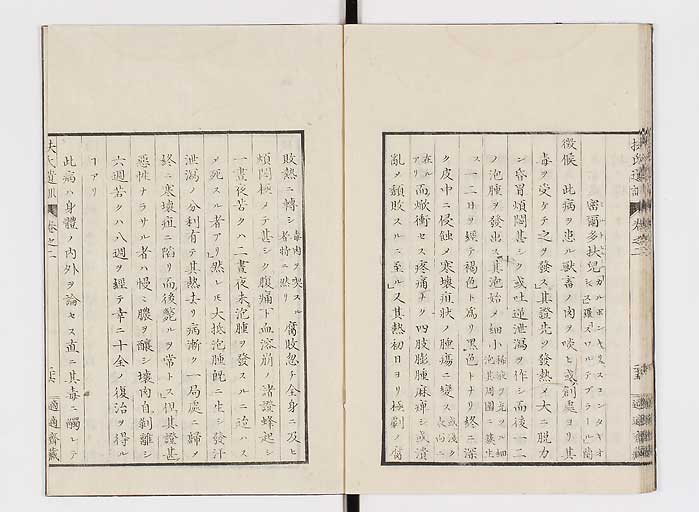 扶氏遺訓 卷之二 適適齋藏
密爾多扶兒
徴候 此病ヲ患ル獸畜ノ肉ヲ喫ヒ或ハ創處ヨリ其
毒ヲ受ケテ之ヲ發ス其證先ツ發熱メ大ニ脱力
シ昏冒煩悶甚シク或吐逆泄瀉ヲ作シ而後一二
ノ泡腫ヲ發出ス其泡始メ細小
ス一二日ヲ經テ褐色ト爲リ黒色トナリ終ニ深
ク皮中ニ侵蝕メ寒壊疽状ノ腫瘍ニ變ス
而焮衝セス疼痛ナク四肢膨腫麻痺シ或潰
亂メ頽敗スルニ至ル又其熱初日ヨリ極劇ノ腐
敗熱ニ轉シ 毒肉ヲ喫スル者特ニ然リ 腐敗忽チ全身ニ及ヒ
煩悶極メテ甚シク腹痛下血溺崩ノ諸證蜂起シ
一晝夜若クハ二晝夜未泡腫ヲ發スルニ迨ハス
メ死スル者アリ然レ𪜈大抵泡腫既ニ生シ發汗
泄瀉ノ分利有テ其熱去リ病漸ク一局處ニ歸メ
終ニ寒壊疽ニ陷リ而後斃ルヲ常トス但其證甚
惡性ナラサル者ハ慢ニ膿ヲ釀シ壊肉自剥離シ
六週若クハ八週ヲ經テ幸ニ十全ノ復治ヲ得ル
ヿアリ
此病ハ身體ノ内外ヲ論セス直ニ其毒ニ觸レテ
扶氏遺訓 卷之二 適適齋藏